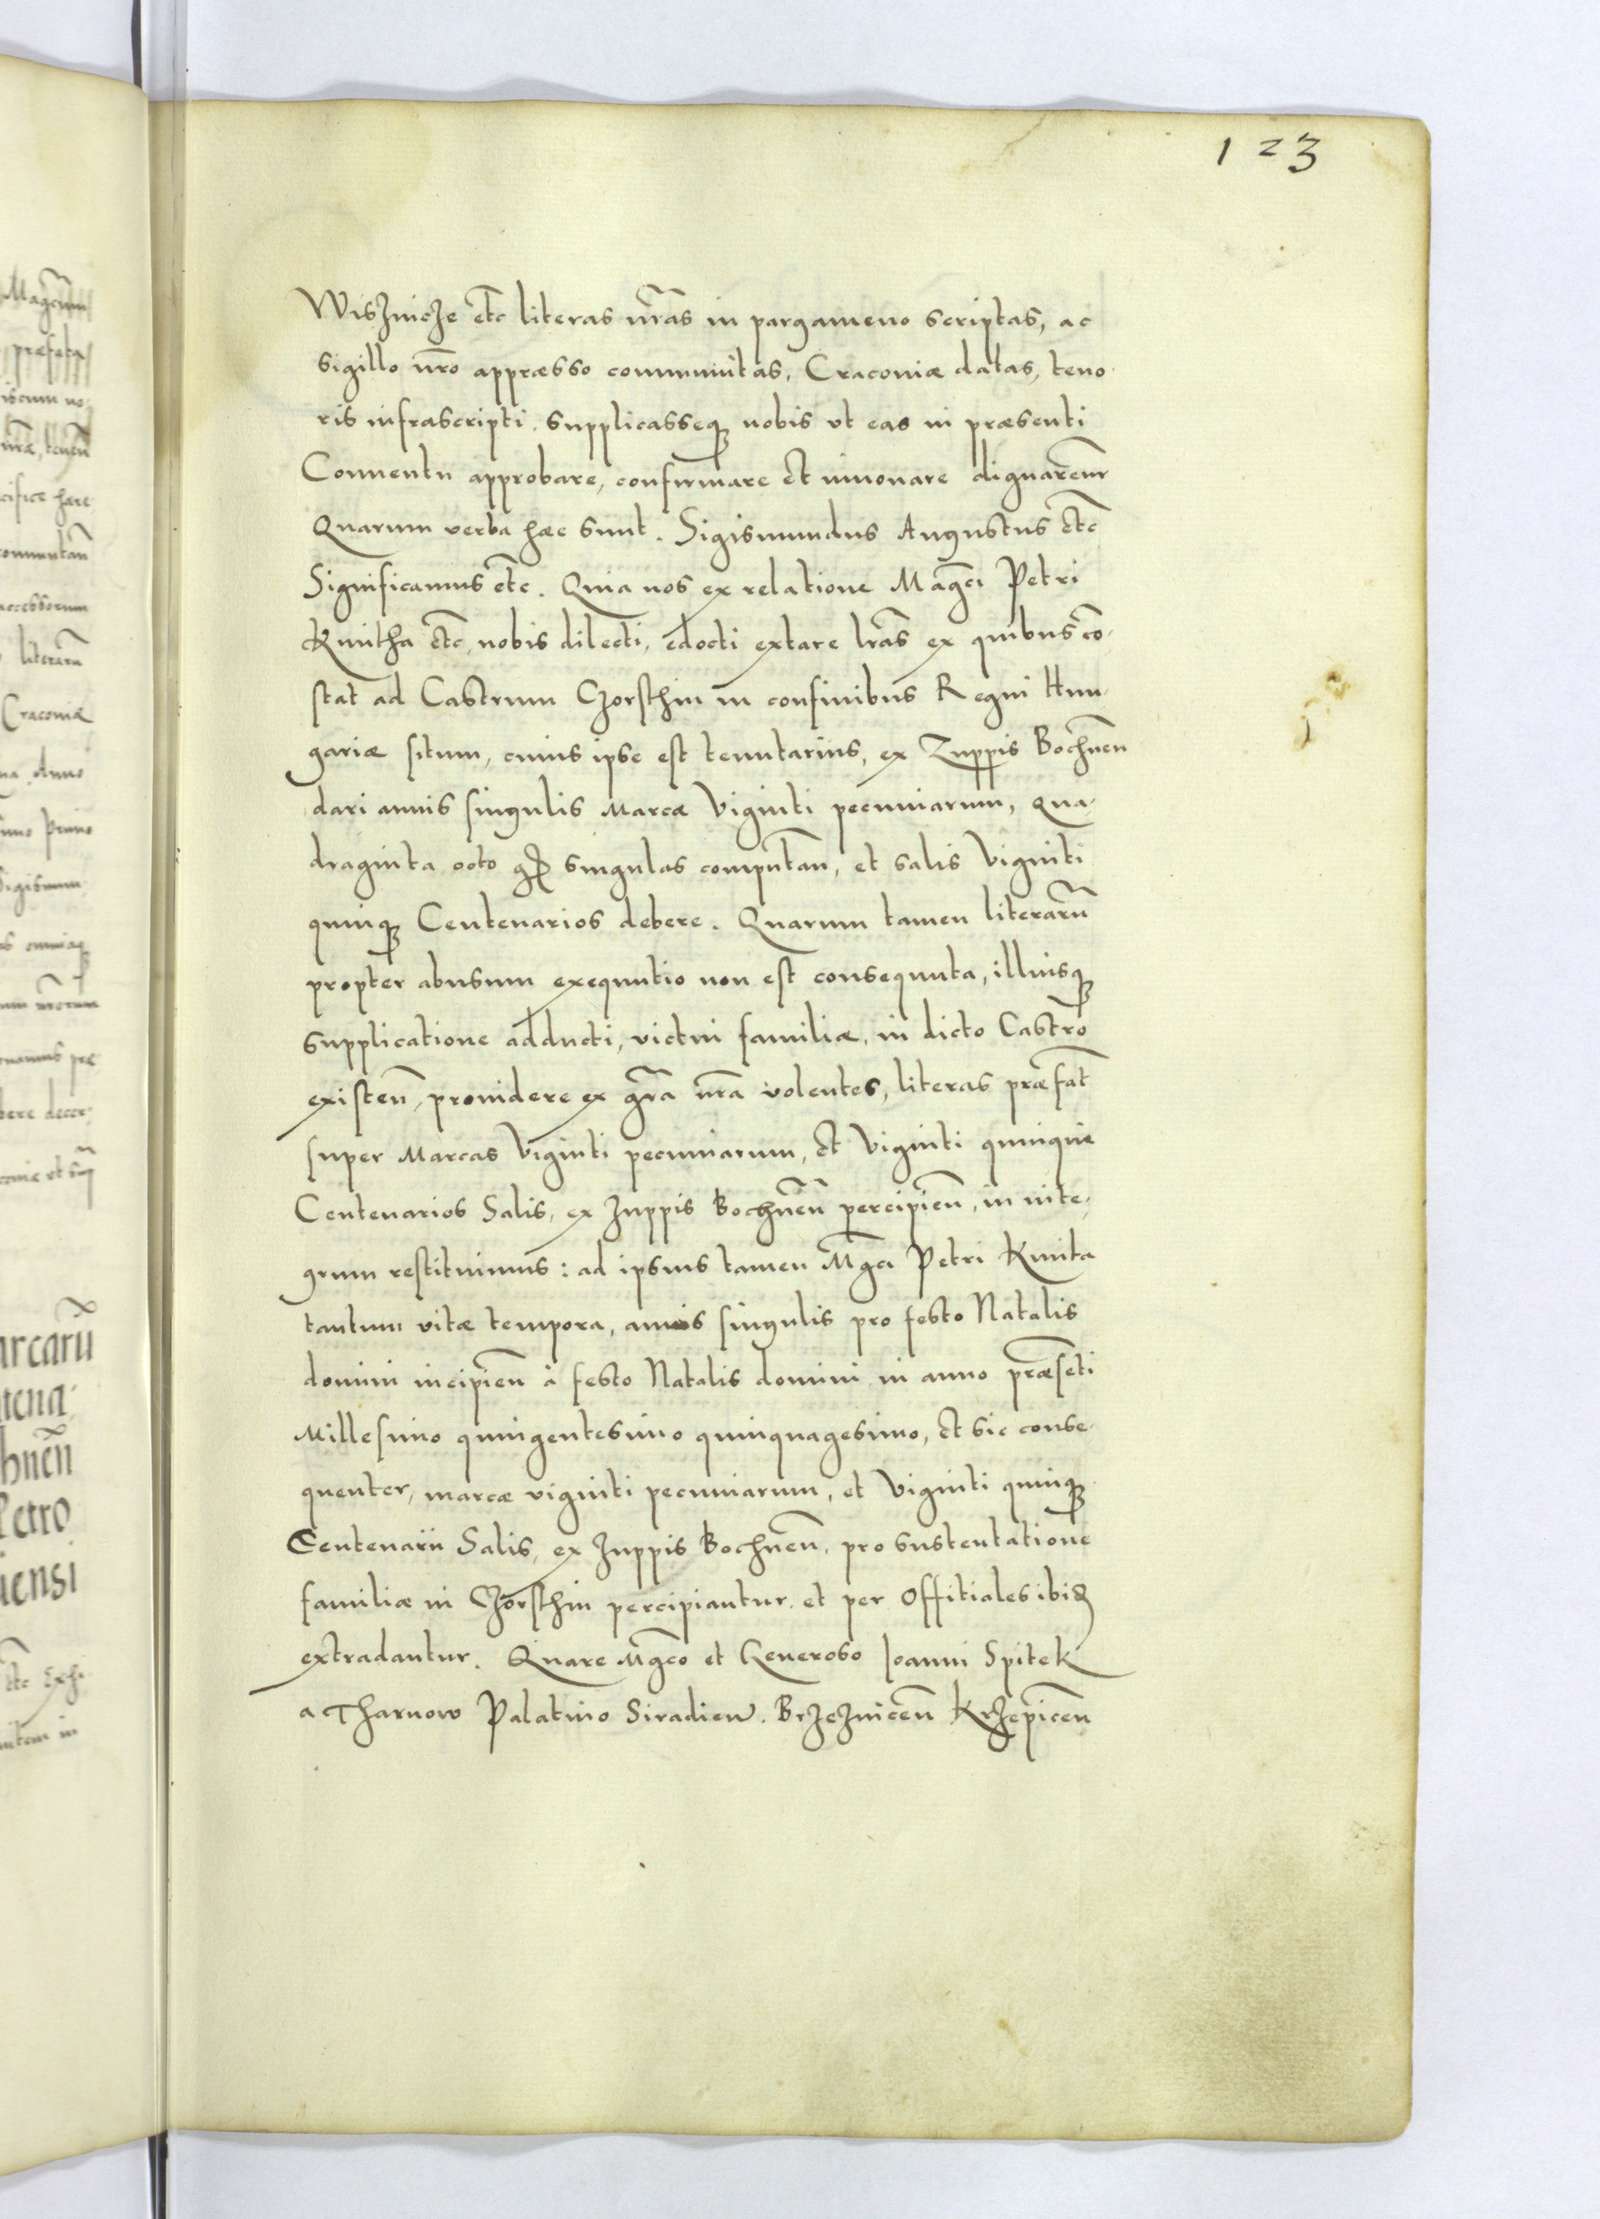 123
Wisznicze etc literas nr̃as in pargameno scriptas, ac
sigillo nr̃o appræsso communitas, Cracoviæ datas, teno-
ris infrascripti. supplicasseq3 nobis ut eas in præsenti
Conventu approbare, confirmare et innovare dignarem̃r
Quarum verba hæc sunt. Sigismundus Augustus etc
Significamus etc. Quia nos ex relatione Magc̃i Petri
Kmitha etc, nobis dilecti, edocti extare lr̃as ex quibus cõ-
stat ad Castrum Czorsthin in confinibus Regni Hun-
gariæ situm, cuius ipse est tenutarius, ex Zuppis Bochneñ
dari annis singulis Marcæ Viginti pecuniarum, qua-
draginta octo gr̃ singulas computan, et salis Viginti
quinq3 Centenarios debere. Quarum tamen literarũ
propter abusum exequutio non est consequuta, illiusq3
supplicatione adducti, victui familiæ, in dicto Castro
existeñ, providere ex gr̃a nr̃a volentes, literas præfat̃
super Marcas Viginti pecuniarum, et Viginti quinque
Centenarios Salis, ex Zuppis Bochneñ percipieñ, in inte-
grum restituimus: ad ipsius tamen Mgc̃i Petri Kmita
tantum vitæ tempora, annis singulis pro festo Natalis
domini incipieñ à festo Natalis domini in anno præsẽti
Millesimo quingentesimo quinquagesimo, et sic conse-
quenter, marcæ viginti pecuniarum, et Viginti quinq3
Centenarii Salis, ex Zuppis Bochneñ, pro sustentatione
familiæ in Czorsthin percipiantur et per Offitiales ibid̃
extradantur. Quare Mgc̃o et Generoso Ioanni Spitek
a Tharnow Palatino Siradieñ. Brzeznicen̄ Krzepicen̄